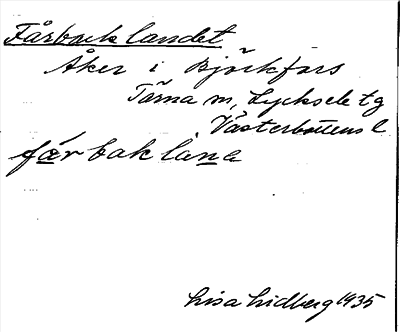 Fårbacklandet
Åker i Björkfors
Tärna m, Lycksele tg
Västerbottens l
fárbaklána
Lisa Lidberg 1935